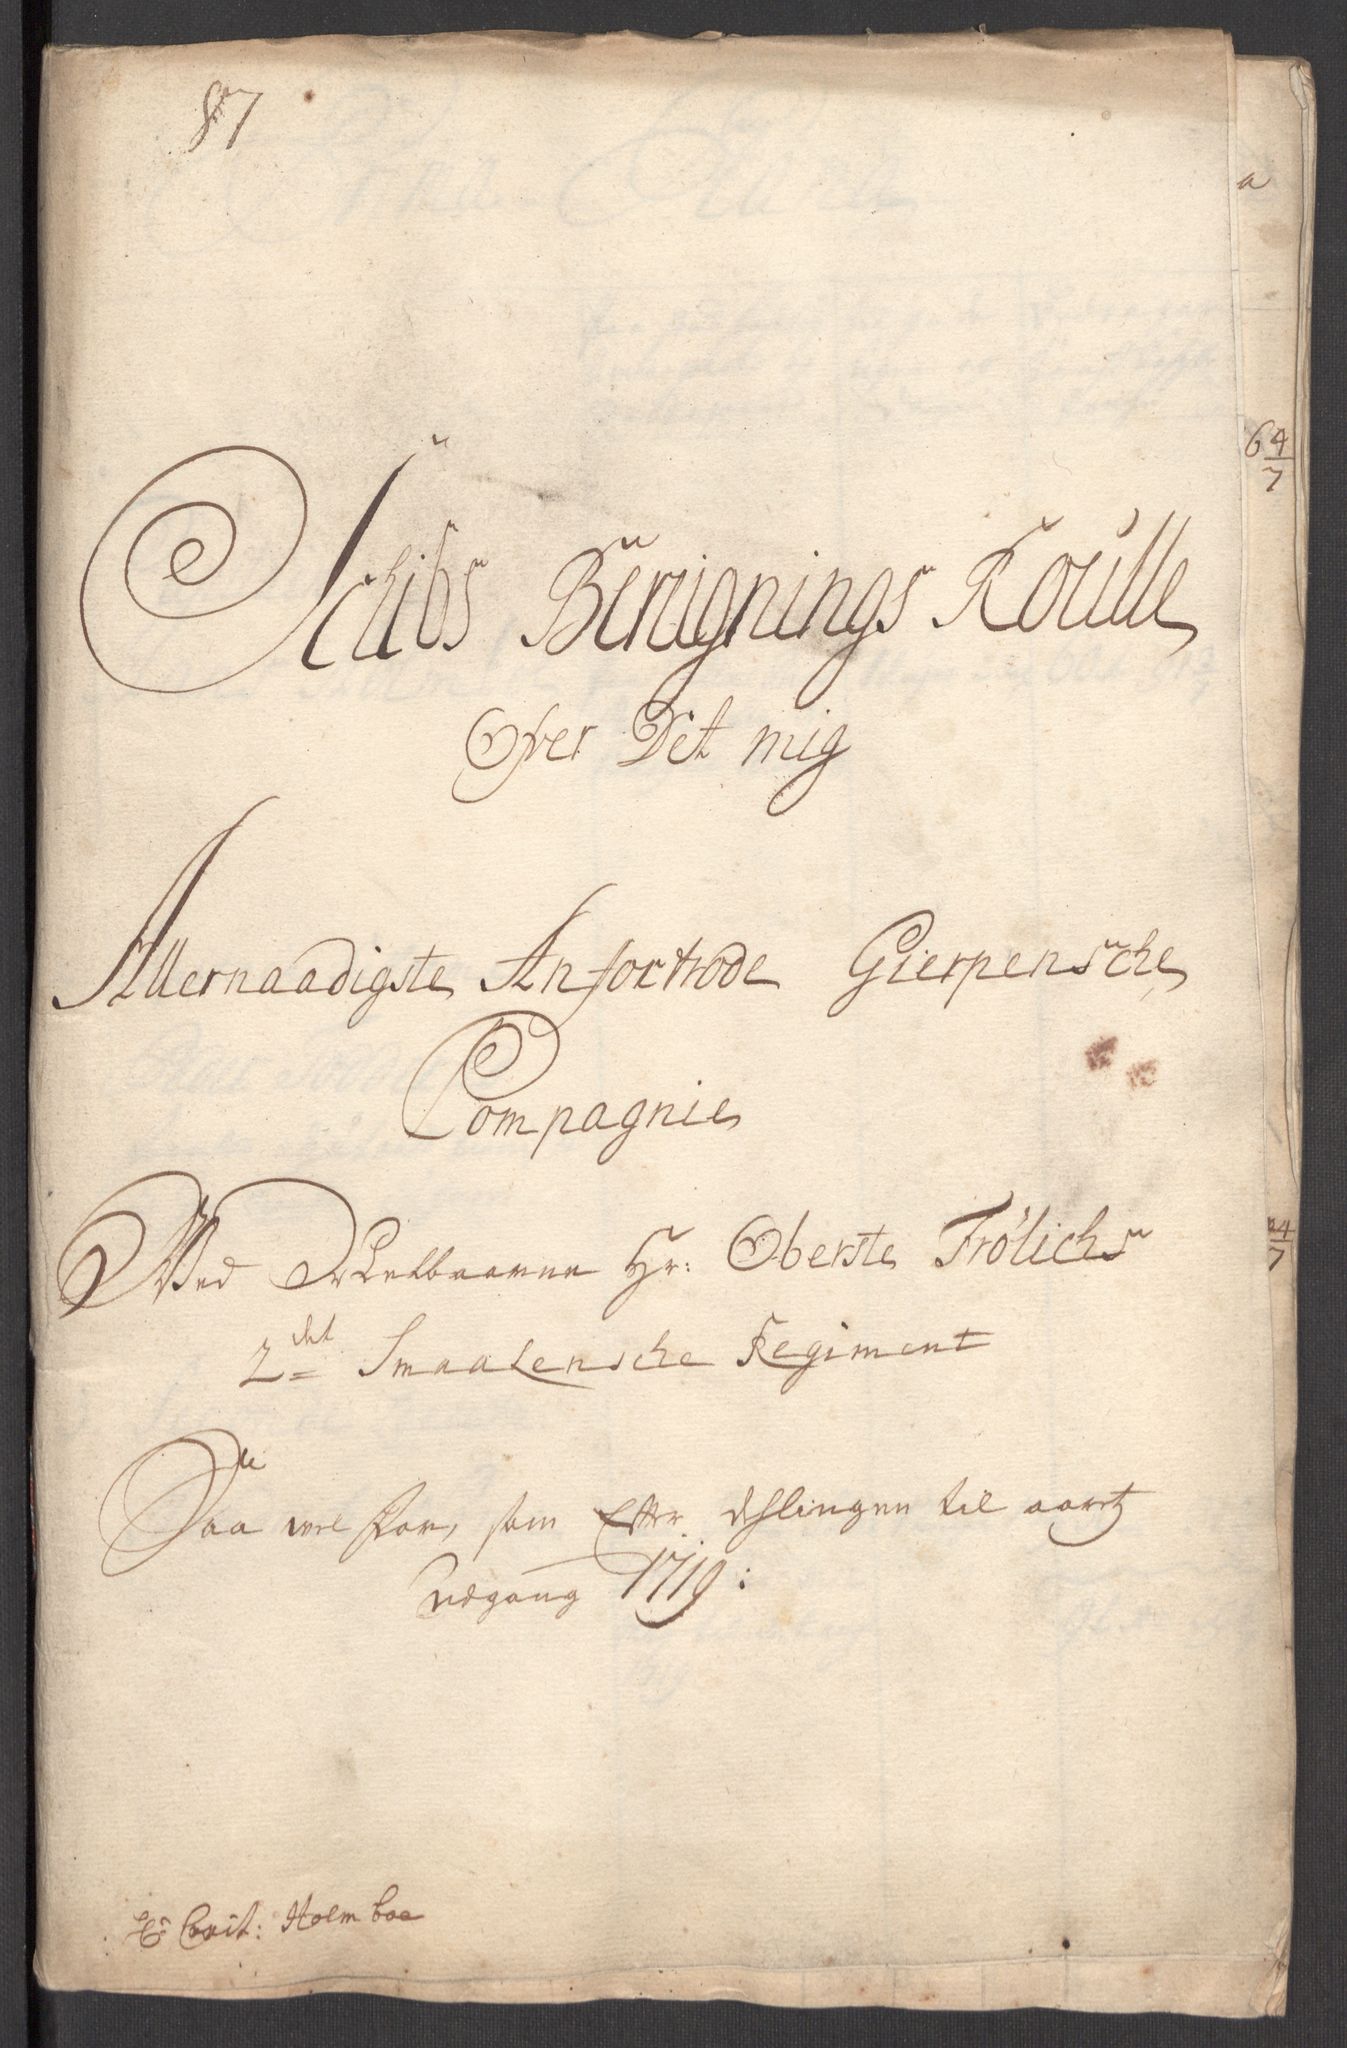 87
a
6 4/7
Schibs Berignings Roulle
Ofver Det mig
Allernaadigste Anfortrode Gierpensche
Compagnie
Med Velbaarne Hr: Oberste Frölichs
4/7
2det Smaalensche Regiment
Saa vel for, som Efter dehlingen til aarets
udgang 1719:
Capit: Holmboe